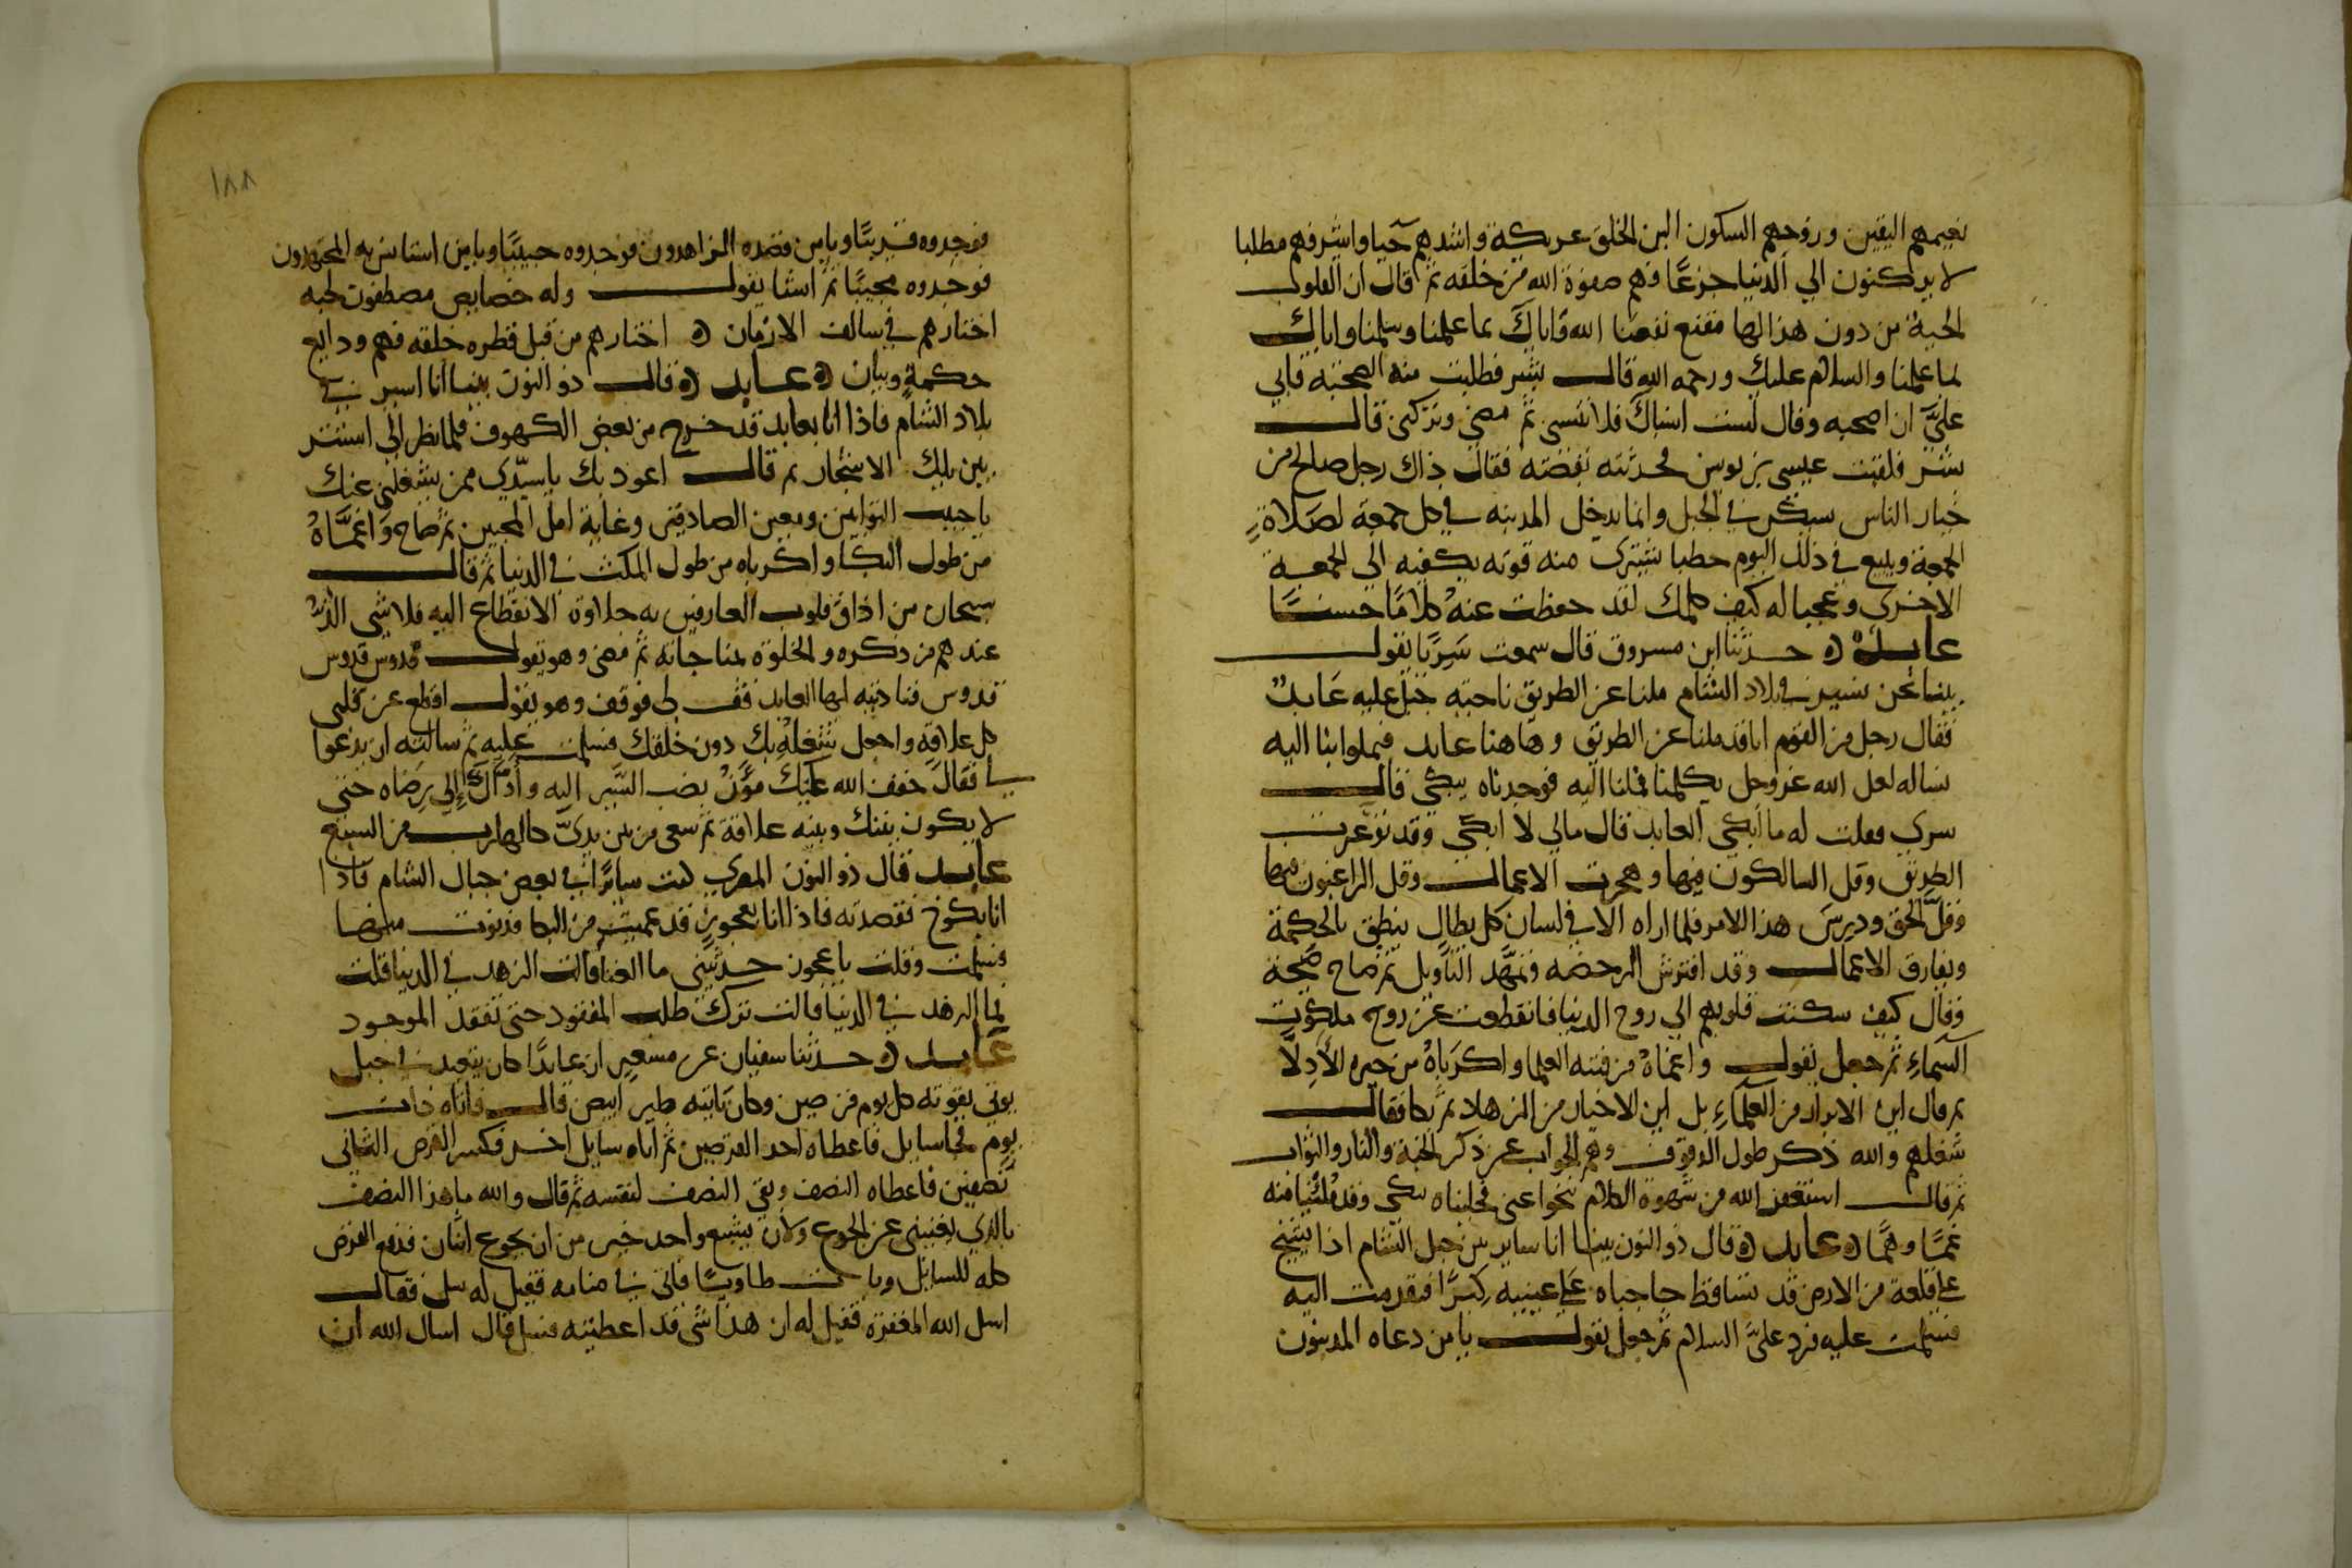 نعيمهم اليقين وروحهم السكون الين الخلق عريكة واشدهم حيا واشرفهم مطلبا
لا يركنون الي الدنيا جزعًا فهم صفوة الله من خلقه ثم قال ان القلوب
الحية من دون هذا لها مقنع نفعنا الله واياك بما علمنا وسلمنا واياك
لما علمنا والسلام عليك ورحمه الله قال بشر فطلبت منه الصحبة فابي
عليَّ ان اصحبه وقال لست انساك فلا تنسى ثم مضى وتركنى قال
بشر فلقيت عيسى بن يونس فحدثته بقصته فقال ذاك رجل صالح من
خيار الناس يسكن في الجبل وانما يدخل المدينه في كل جمعة لصلاة
الجمعة ويبيع في ذلك اليوم حطبا يشترى منه قوته يكفيه الي الجمعة
الاخرى وعجبا له كيف كلمك لقد حفظت عنه كلامًا حسنًا
عابد ه حدثنا ابن مسروق قال سمعت سَرِيًا يقول
بينما نحن نسير في بلاد الشام ملنا عن الطريق ناحيته جبل عليه عابدٌ
فقال رجل من القوم انا قد ملنا عن الطريق وها هنا عابد فميلوا بنا اليه
نساله لعل الله عز وجل يكلمنا فملنا اليه فوجدناه يبكى قال
سرى فقلت له ما ابكى العابد قال مالي لا ابكى وقد توعرت
الطريق وقل السالكون فيها وهجرت الاعمال وقل الراغبون فيها
وقلَّ الحق ودرس هذا الامر فلما اراه الا في لسان كل بطال ينطق بالحكمة
ويفارق الاعمال وقد افترش الرخصه وتمهَّد التأويل ثم صاح صيحة
وقال كيف سكنت قلوبهم الي روح الدنيا فانقطعت عن روح ملكوت
السماءِ ثم جعل يقول واغماهُ من فتنه العلما واكرباهُ من حيره الأدلا
ثم قال اين الابرار من العلماءِ بل اين الاخيار من الزهاد ثم بكا فقال
شغلهم والله ذكر طول الوقوف وهم الجواب عن ذكر الجنة والنار والثواب
ثم قال استغفر الله من شهوة الكلام تنحوا عنى فخليناه يبكى وقد مُلئنا منه
غمًا وهمًّا ه عابد ه قال ذو النون بينما انا ساير بين جبل الشام اذا بشيخ
على قلعة من الارض قد تساقط حاجباه على عينيه كِبَرًا فتقدمت اليه
فسلمت عليه فرد عليَّ السلام ثم جعل يقول يا من دعاه المذنبون
١٨٨
فوجدوه قريبًا ويا من قصده الزاهدون فوجدوه حبيبًا ويا من استانس به المجتهدون
فوجدوه مجيبًا ثم انشا يقول وله خصايص مصطفون لحبه
اختارهم في سالف الازمان ه اختارهم من قبل فطره خلقه فهم ودايع
حكمةٍ وبيان ه عابد ه قال ذو النون بينما انا اسير في
بلاد الشام فاذا انا بعابد قد خرج من بعض الكهوف فلما نظر الي استتر
بين تلك الاشجار ثم قال اعوذ بك يا سيّدي ممن يشغلنى عنك
يا حبيب التوابين ومعين الصادقين وغاية امل المحبين ثم صاح واغمَّاهُ
من طول البكا واكرباه من طول المكث في الدنيا ثم قال
سبحان من اذاق قلوب العارفين به حلاوة الانقطاع اليه فلا شي الذّ
عندهم من ذكره والخلوة بمناجاته ثم مضى وهو يقول قدوس قدوس
قدوس فناديته ايها العابد قف لى فوقف وهو يقول اقطع عن قلبى
كل علاقةٍ واجعل شغلهُ بك دون خلقك فسلمت عليه ثم سالته ان يدعوا
لى فقال خفف الله عليك مؤن نصب السَّير اليه وأدّاك إلى رضاه حتى
لا يكون بينك وبينه علاقة ثم سعى من بين يديَّ كالهارب من السبع
عابد قال ذو النون المصرى كنت سايرًا في بعض جبال الشام فاذا
انا بكوخ فقصدته فاذا انا بعجوزٍ قد عميت من البكا فدنوت منها
فسلمت وقلت يا عجوز حدثيني ما الغنا قالت الزهد في الدنيا قلت
فما الزهد في الدنيا قالت ترك طلب المفقود حتى تفقد الموجود
عابد ه حدثنا سفيان عن مسعرٍ ان عابدًا كان يتعبد في جبل
يوتى بقوته كل يوم قرصين وكان تاتيه طير ابيض قال فاتاه ذات
يوم فجا سايل فاعطاه احد القرصين ثم اتاه سايل اخر فكسر القرص الثانى
نصفين فاعطاه النصف وبقى النصف لنفسه ثم قال والله ما هذا النصف
بالذي يغنينى عن الجوع ولأن يشبع واحد خير من ان يجوع اثنان فدفع القرص
كله للسايل وبات طاويًا فاتى في منامه فقيل له سل فقال
اسل الله المغفرة فقيل له ان هذا شى قد اعطيته فسل قال اسال الله ان